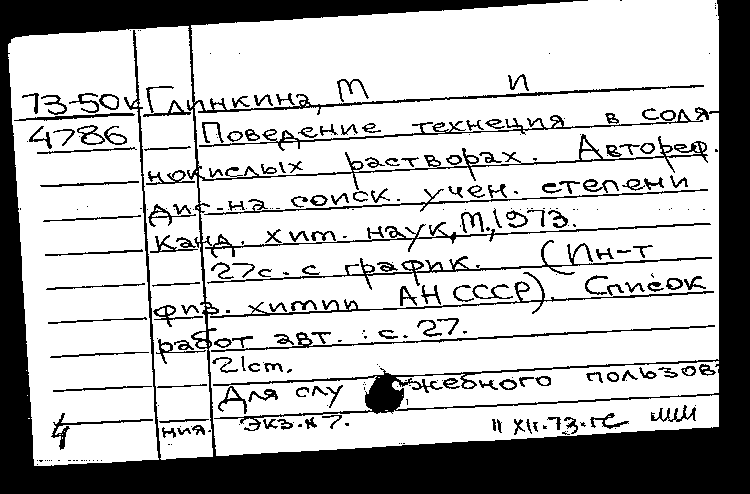 73-50к Глинкина, М И
4786 Поведение технеция в соля-
нокислых растворах. Автореф.
дис. на соиск. учен. степени
канд. хим. наук, М., 1973.
27с. с график. (Ин-т
физ. химии АН СССР). Список
работ авт. : с. 27.
21cm.
Для служебного пользова
4 ния. Экз. № 7. 11 XII.73.гс